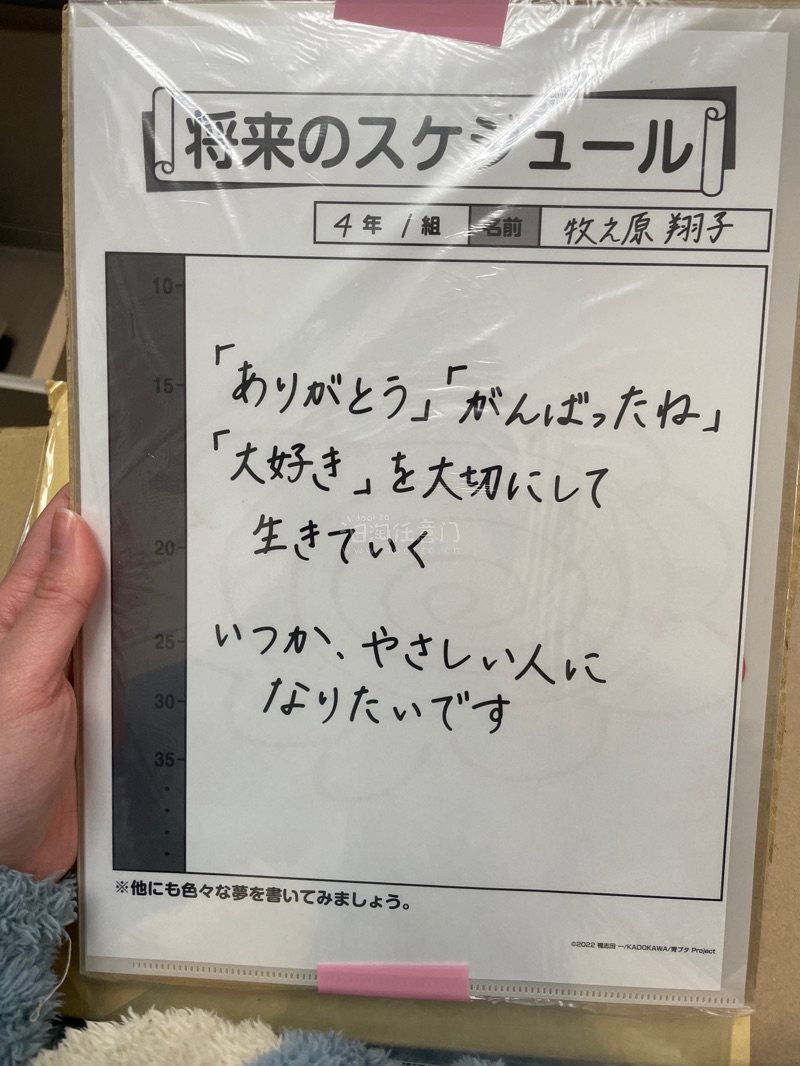 将来のスケジュール
4年 1組 名前 牧之原 翔子
10
15
20
25
30
35
「ありがとう」「がんばったね」
「大好き」を大切にして
生きていく
いつか、やさしい人に
なりたいです
※他にも色々な夢を書いてみましょう。
©2022 鴨志田 一/KADOKAWA/青ブタ Project